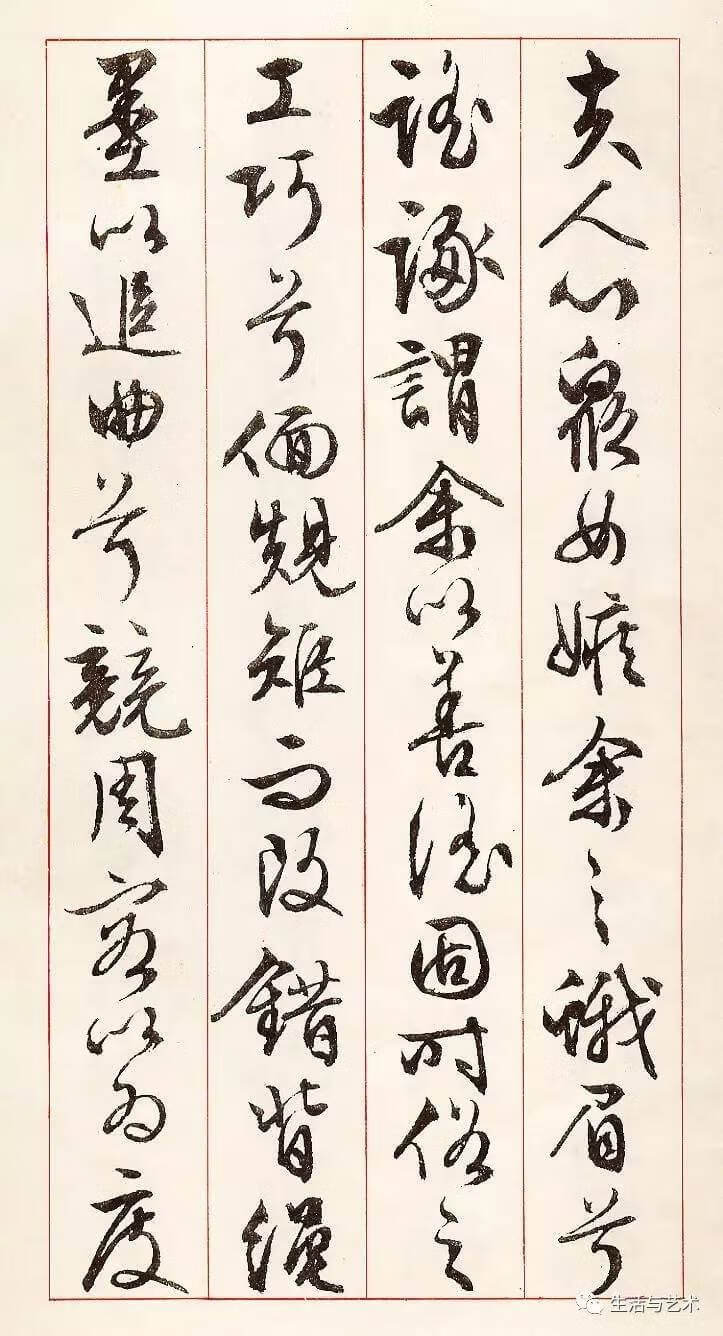 夫人心衆女嫉余之蛾眉兮
謠諑謂余以善淫固時俗之
工巧兮偭規矩而改錯背繩
墨以追曲兮競周容以為度
生活与艺术